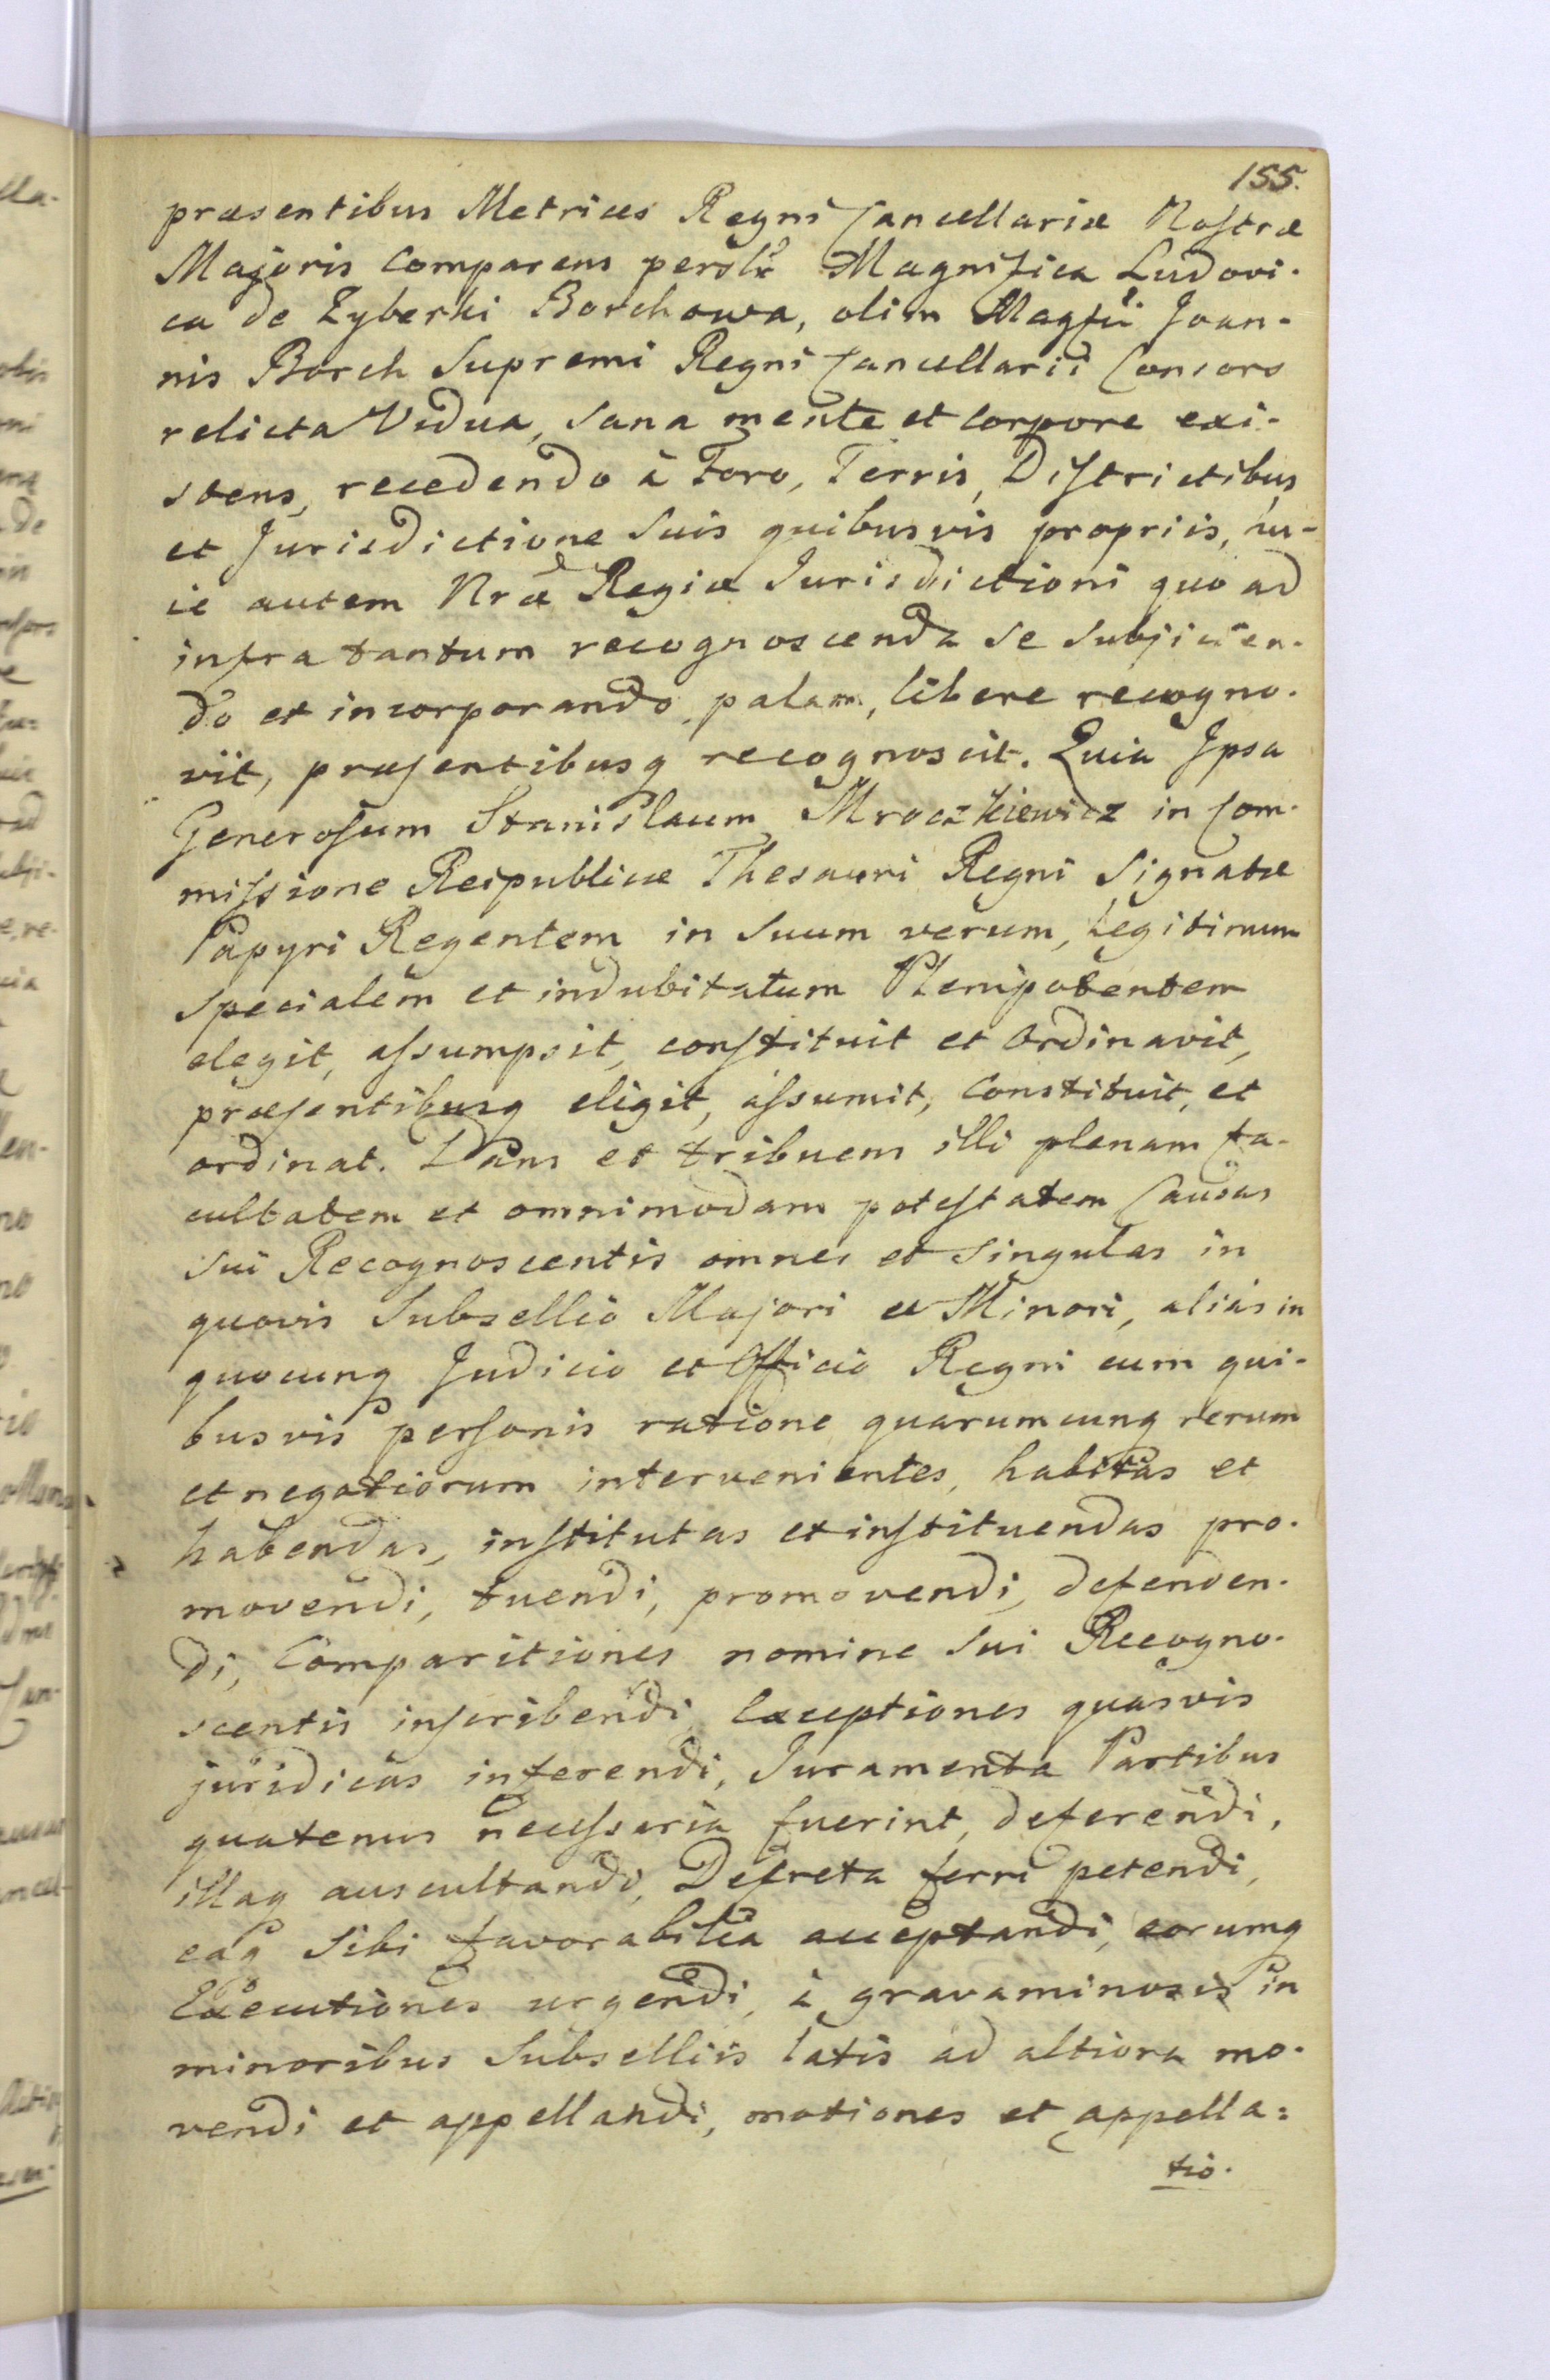 155.
præsentibus Metrices Regni Cancellariæ Nostræ
Majoris Comparens persłr Magnifica Ludovi-
ca de Zyberki Borchowa, olim Magfci Joan-
nis Borch Supremi Regni Cancellarii Consors
relicta Vidua, sana mente et corpore exi-
stens, recedendo à Foro, Terris, Districtibus
et Jurisdictione suis quibusvis propriis, hu-
ic autem Nræ Regiæ Jurisdictioni quo ad
infra tantum recognoscenda se subjicien-
do et incorporando, palam, libere recogno-
vit, præsentibusq recognoscit. Quia Ipsa
Generosum Stanislaum Mroczkiewicz in Com-
missione Reipublicæ Thesauri Regni Signatæ
Papyri Regentem in suum verum, legitimum
specialem et indubitatum Plenipotentem
elegit, assumpsit, constituit et ordinavit,
præsentibusq eligit, assumit, constituit, et
ordinat. Dans et tribuens illi plenam fa-
cultatem et omnimodam potestatem Causas
sui Recognoscentis omnes et singulas in
quovis Subsellio Majori et Minori, alias in
quocunq Judicio et Officio Regni cum qui-
busvis personis ratione quarumcunq rerum
et negotiorum intervenientes, habitas et
habendas, institutas et instituendas pro-
movendi, tuendi, promovendi, defenden-
di, Comparitiones nomine sui Recogno-
scentis inscribendi, Exceptiones quasvis
juridicas inferendi, Juramenta Partibus
quatenus necessaria fuerint, deferendi,
illaq auscultandi, Decreta ferri petendi,
eaq sibi favorabilia acceptandi, eorumq
Executiones urgendi, à gravaminosis in
minoribus Subselliis latis ad altiora mo-
vendi et appellandi, motiones et appella=
tio-